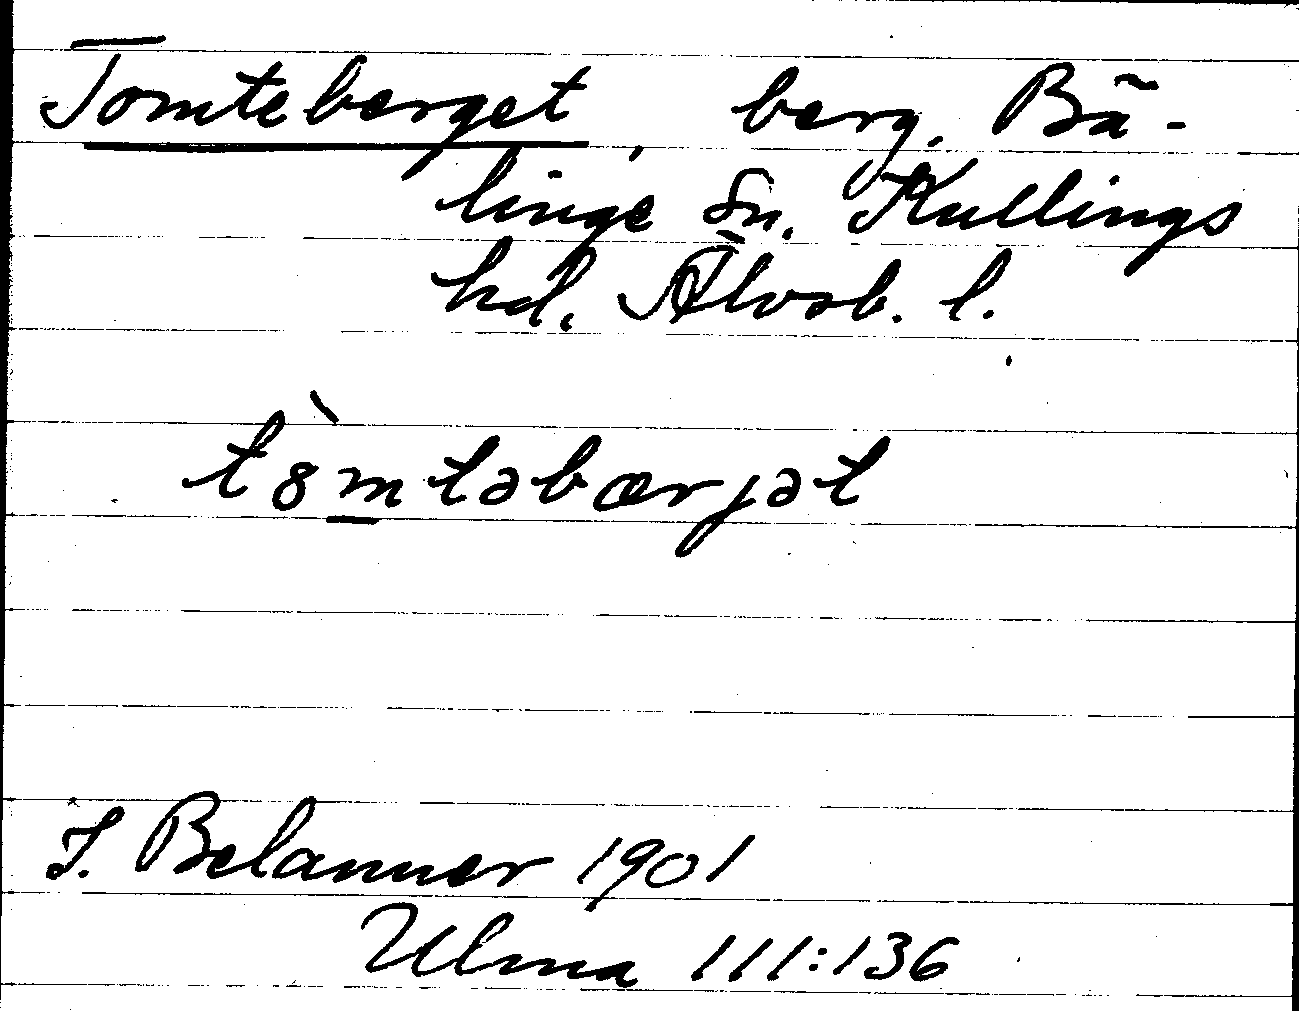 Tomteberget, berg, Bä-
linge sn. Kullings
hd. Älvsb. l.
t8̀mtəbærjət
J. Belanner 1901
Ulma 111:136